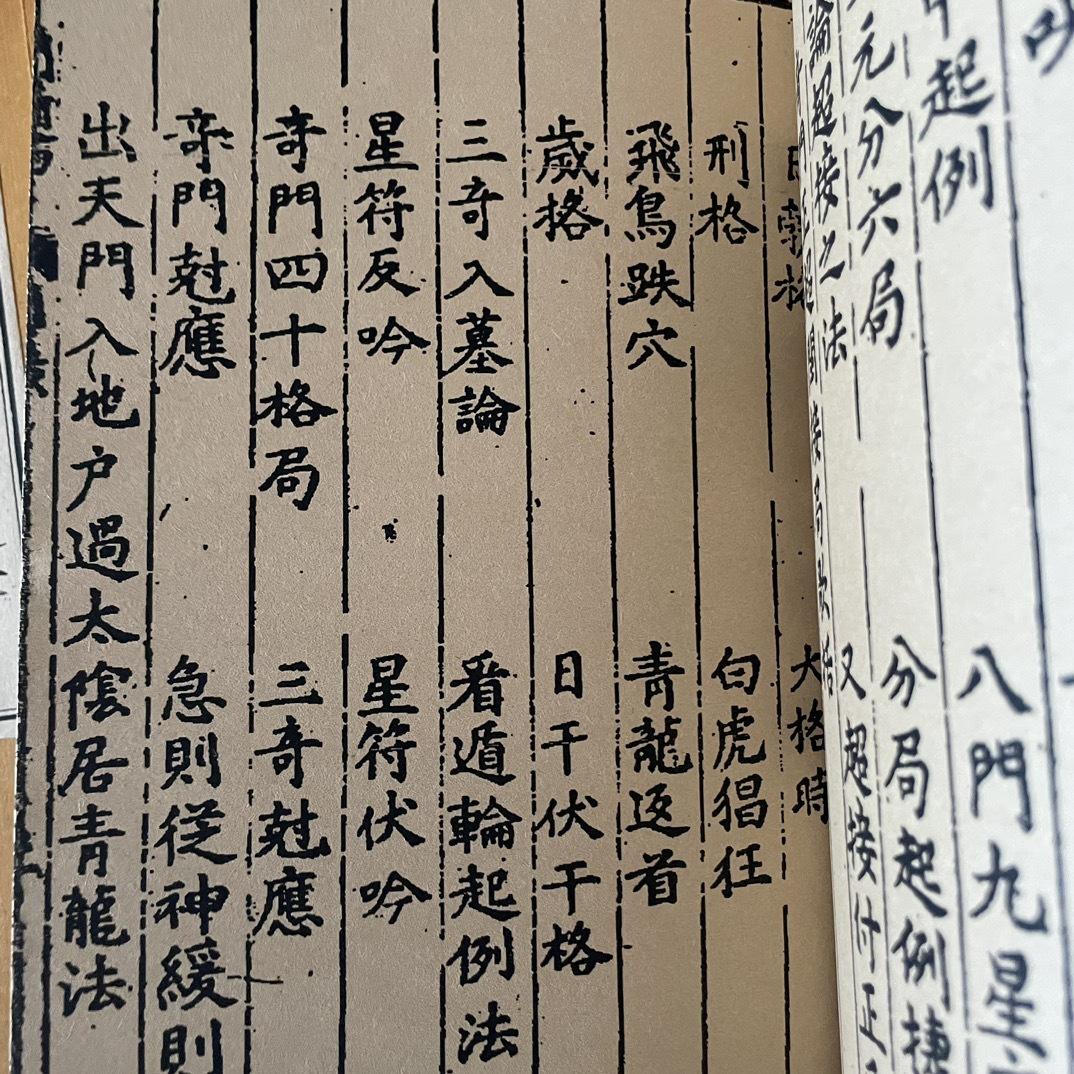 起例
八門九星
元分六局
分局起例捷
論超接之法
又超接付正
大格時
刑格
白虎猖狂
飛鳥跌穴
青龍返首
歲格
日干伏干格
三奇入墓論
看遁輪起例法
星符反吟
星符伏吟
奇門四十格局
三奇尅應
奇門尅應
急則從神緩則
出天門入地户過太陰居青龍法